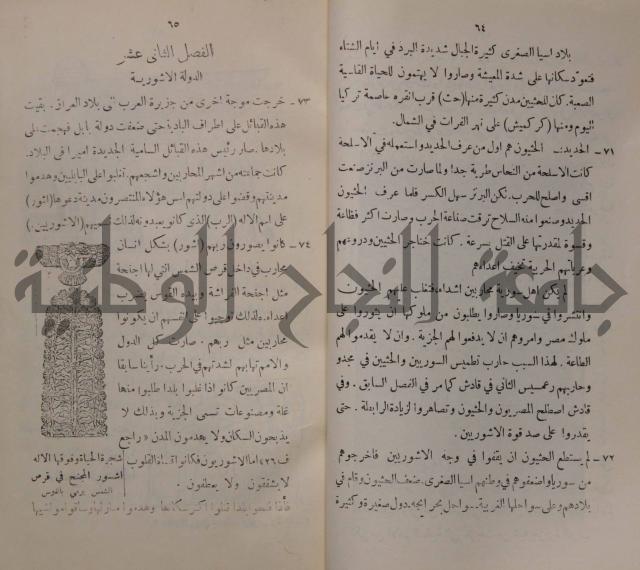 ٦٤
بلاد اسيا الصغرى كثيرة الجبال شديدة البرد في ايام الشتاء
فتعود سكانها على شدة المعيشة وصاروا لا يهتمون للحياة القاسية
الصعبة. كان للحثيين مدن كثيرة منها (حث) قرب انقره عاصمة تركيا
اليوم ومنها (كركميش) على نهر الفرات في الشمال.
٧١ - الحديد:- الحثيون هم اول من عرف الحديد واستعمله في الاسلحة
كانت الاسلحة من النحاس طرية جدا ولما صارت من البرنز صنعت
اقسى واصلح للحرب. لكن البرنز سهل الكسر فلما عرف الحثيون
الحديد وصنعوا منه السلاح ترقت صناعة الحرب وصارت اكثر فظاعة
وقسوة لمقدرتها على القتل بسرعة. كانت خناجر الحثيين ودروعهم
وعرباتهم الحربية تخيف اعداءهم
لم يكن اهل سورية محاربين اشداء، فتغلب عليهم الحثيون
وانتشروا في سوريا وصاروا يطلبون من ملوكها ان يثوروا على
ملوك مصر وامروهم ان لا يدفعوا لهم الجزية. وان لا يقدموا لهم
الطاعة. لهذا السبب حارب تحطميس السوريين والحثيين في مجدو
وحاربهم رعمسيس الثاني في قادش كما مر في الفصل السابق. وفي
قادش اصطلح المصريون والحثيون وتصاهروا لزيادة الرابطة. حتى
يقدروا على صد قوة الاشوريين.
٧٢ - لم يستطع الحثيون ان يقفوا في وجه الاشوريين فاخرجوهم
من سوريا واضعفوهم في وطنهم اسيا الصغرى. ضعف الحثيون وقام في
بلادهم وعلى سواحلها الغربية سواحل بحر ايجه، دول صغيرة وكثيرة
٦٥
الفصل الثاني عشر
الدولة الاشورية
٧٣ - خرجت موجة اخرى من جزيرة العرب الى بلاد العراق. بقيت
هذه القبائل على اطراف البادية حتى ضعفت دولة بابل فهجمت على
بلادها. صار رئيس هذه القبائل السامية الجديدة اميرا في البلاد.
كانت جماعته من اشهر المحاربين واشجعهم. تغلبوا على البابليين وهدموا
مدينتهم وقضوا على دولتهم. اسس هؤلاء المنتصرون مدينة دعوها (اشور)
على اسم الاله (الرب) الذي كانوا يعبدونه لذلك نسميهم (الاشوريين.)
٧٤ - كانوا يصورون ربهم (اشور) بشكل انسان
محارب في داخل قرص الشمس التي لها اجنحة
مثل اجنحة الفراشة وبيده القوس يضرب
اعداءه. ولذلك توجبوا على انفسهم ان يكونوا
محاربين مثل ربهم. صارت كل الدول
والامم تهابهم لشدتهم في الحرب. رأينا سابقا
ان المصريين كانوا اذا غلبوا بلدا طلبوا منها
غلة ومصنوعات تسمى الجزية وبذلك لا
يذبحون السكان ولا يهدمون المدن « راجع
ف ٢٦» اما الاشوريون فكانوا قساة القلوب
لا يشفقون ولا يعطفون.
فاذا فتحوا بلدا قتلوا اكثر سكانها وهدموا منازلها وساقوا مواشيها
شجرة الحياة وفوقها الاله
اشور المجنح في قرص
الشمس يرمي بالقوس
جامعة النجاح الوطنية